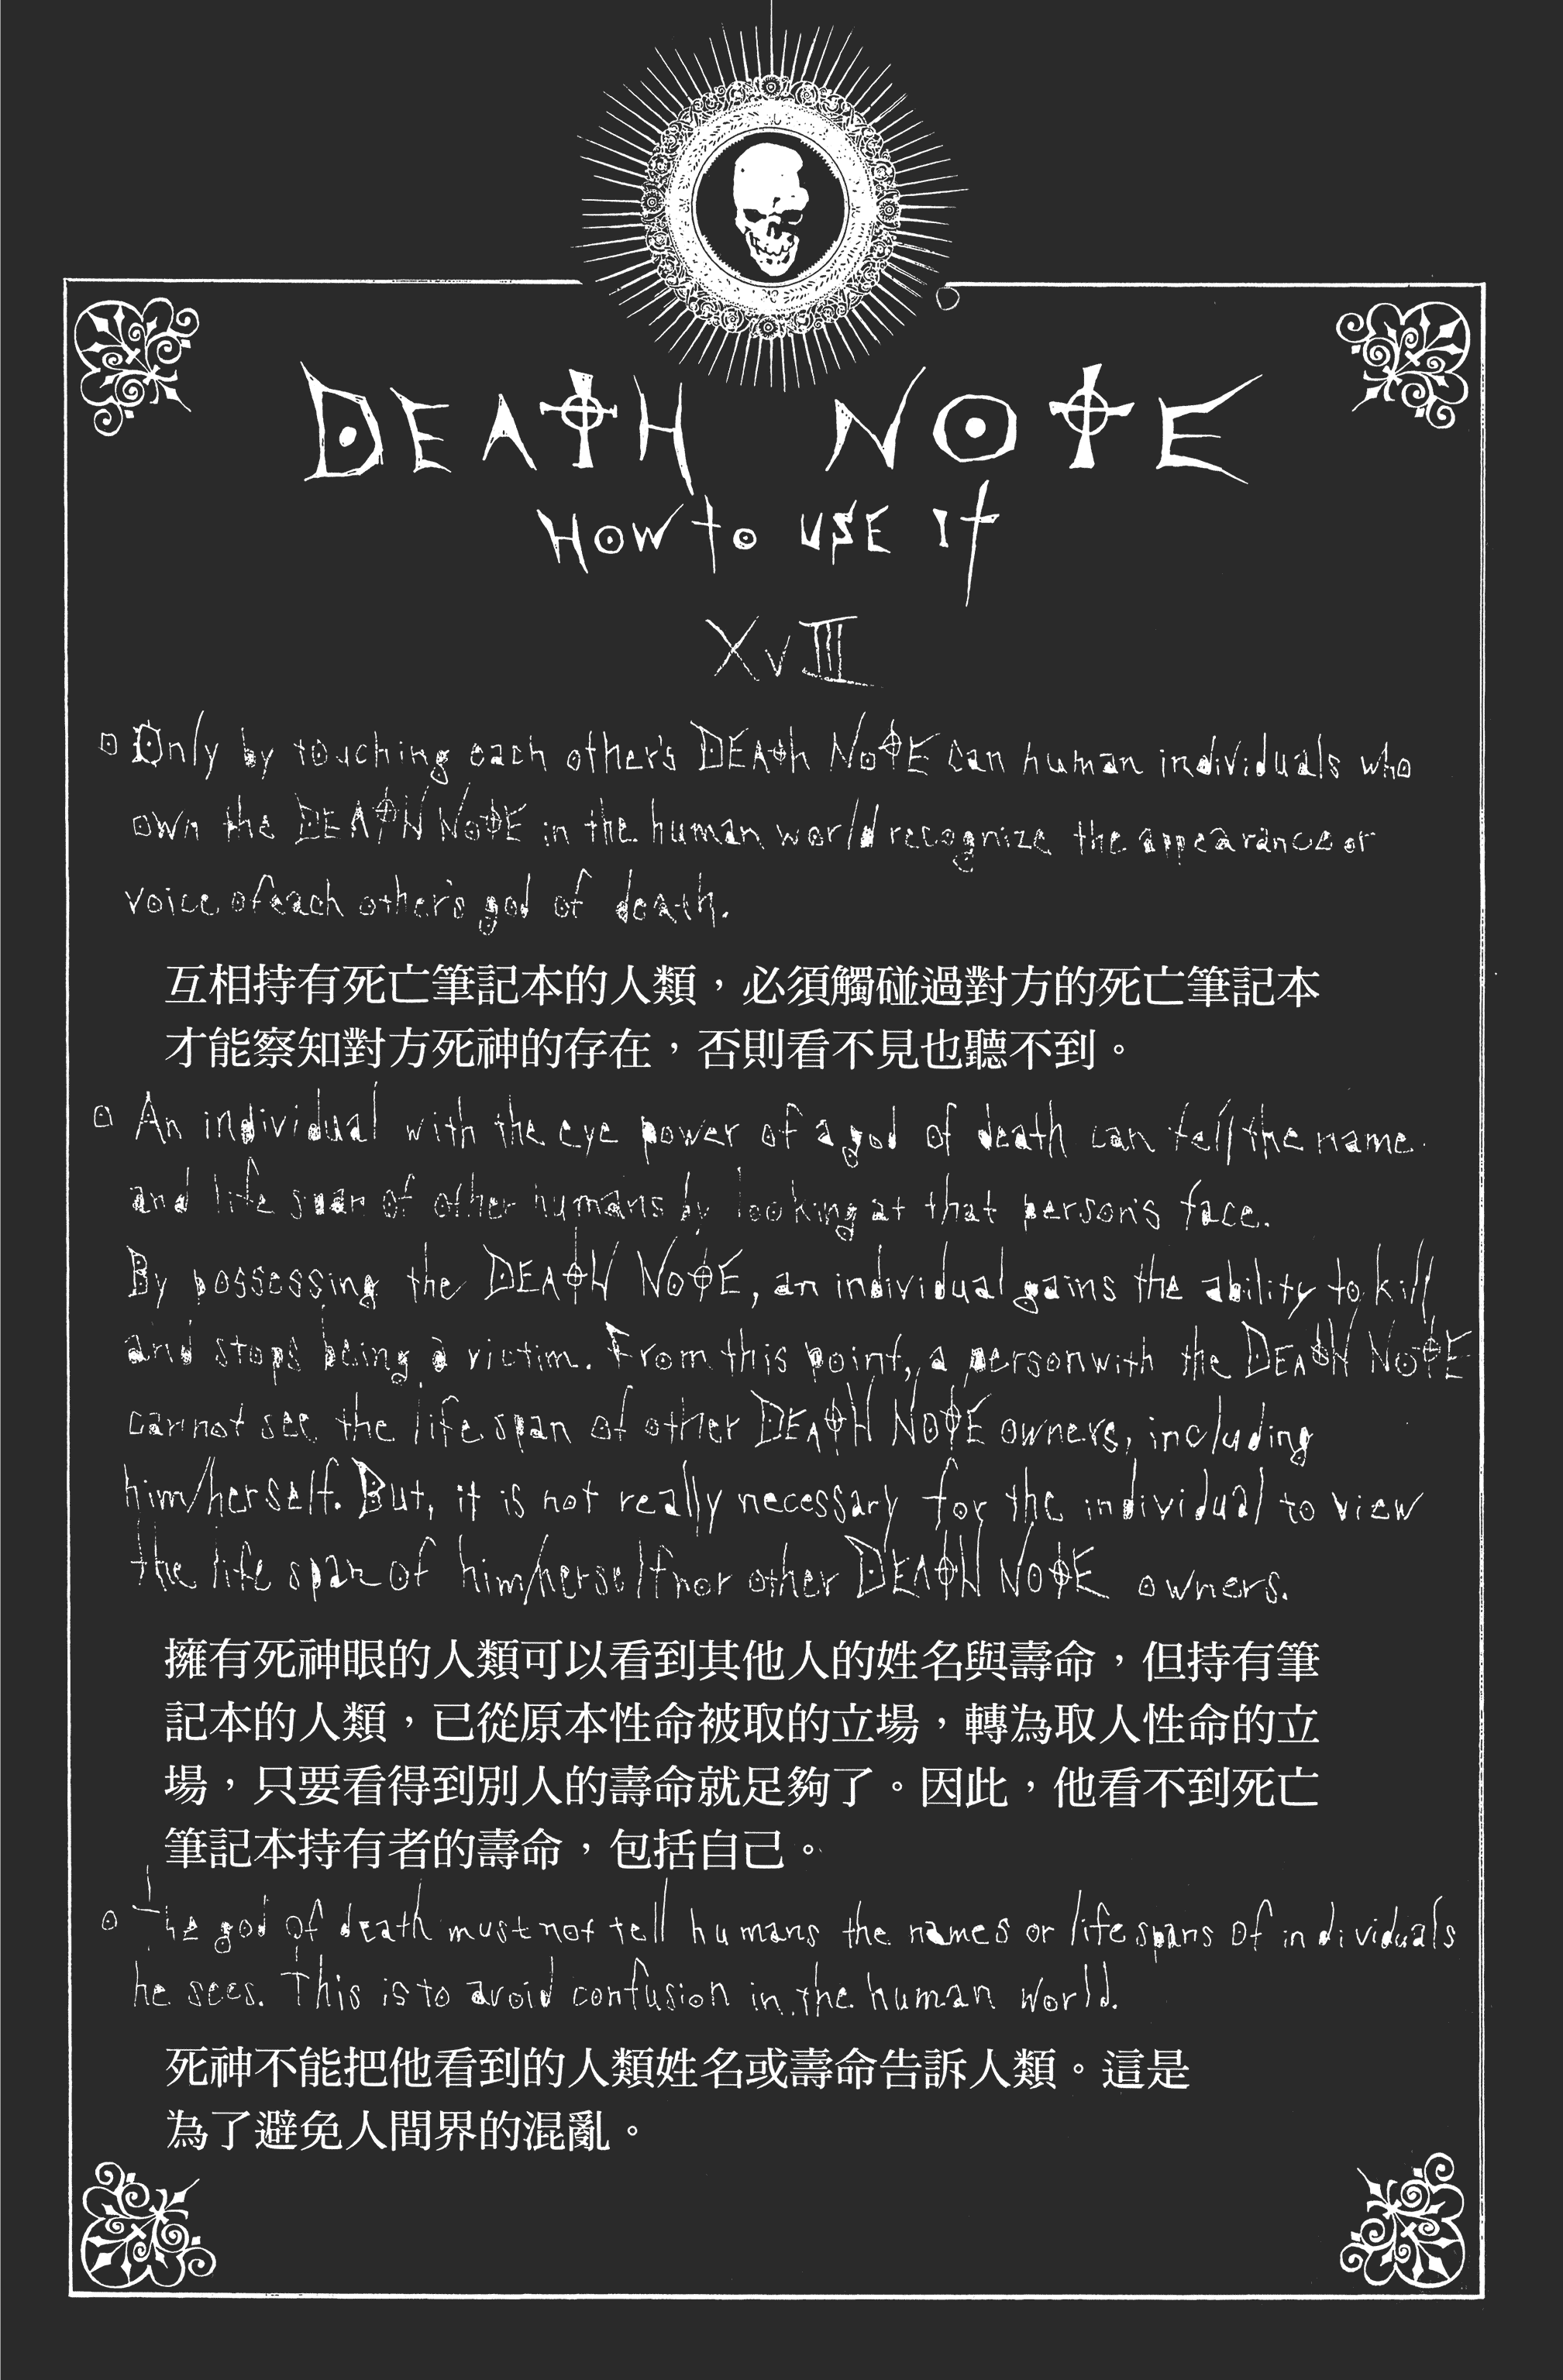 DEATH NOTE
HOW to USE It
XVIII
Only by touching each other's DEATH NOTE can human individuals who
own the DEATH NOTE in the human world recognize the appearance or
voice of each other's god of death.
互相持有死亡筆記本的人類，必須觸碰過對方的死亡筆記本
才能察知對方死神的存在，否則看不見也聽不到。
An individual with the eye power of a god of death can tell the name
and life span of other humans by looking at that person's face.
By possessing the DEATH NOTE, an individual gains the ability to kill
and stops being a victim. From this point, a person with the DEATH NOTE
cannot see the life span of other DEATH NOTE owners, including
him/herself. But, it is not really necessary for the individual to view
the life span of him/herself nor other DEATH NOTE owners.
擁有死神眼的人類可以看到其他人的姓名與壽命，但持有筆
記本的人類，已從原本性命被取的立場，轉為取人性命的立
場，只要看得到別人的壽命就足夠了。因此，他看不到死亡
筆記本持有者的壽命，包括自己。
The god of death must not tell humans the names or life spans of individuals
he sees. This is to avoid confusion in the human world.
死神不能把他看到的人類姓名或壽命告訴人類。這是
為了避免人間界的混亂。